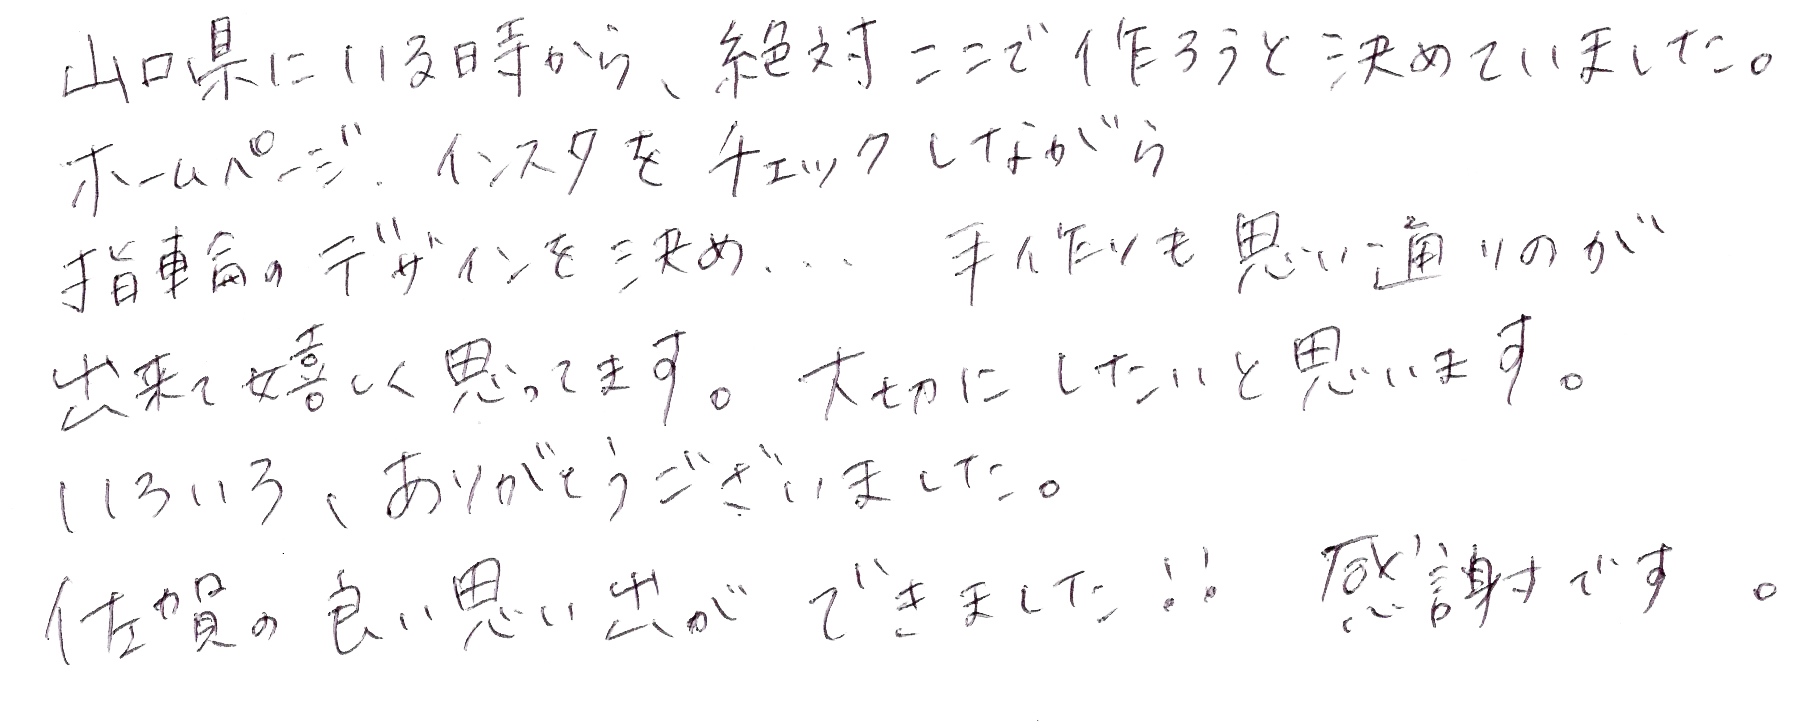 山口県にいる時から、絶対ここで作ろうと決めていました。
ホームページ、インスタをチェックしながら
指輪のデザインを決め... 手作りも思い通りのが
出来て嬉しく思ってます。大切にしたいと思います。
いろいろ、ありがとうございました。
佐賀の良い思い出ができました!! 感謝です。